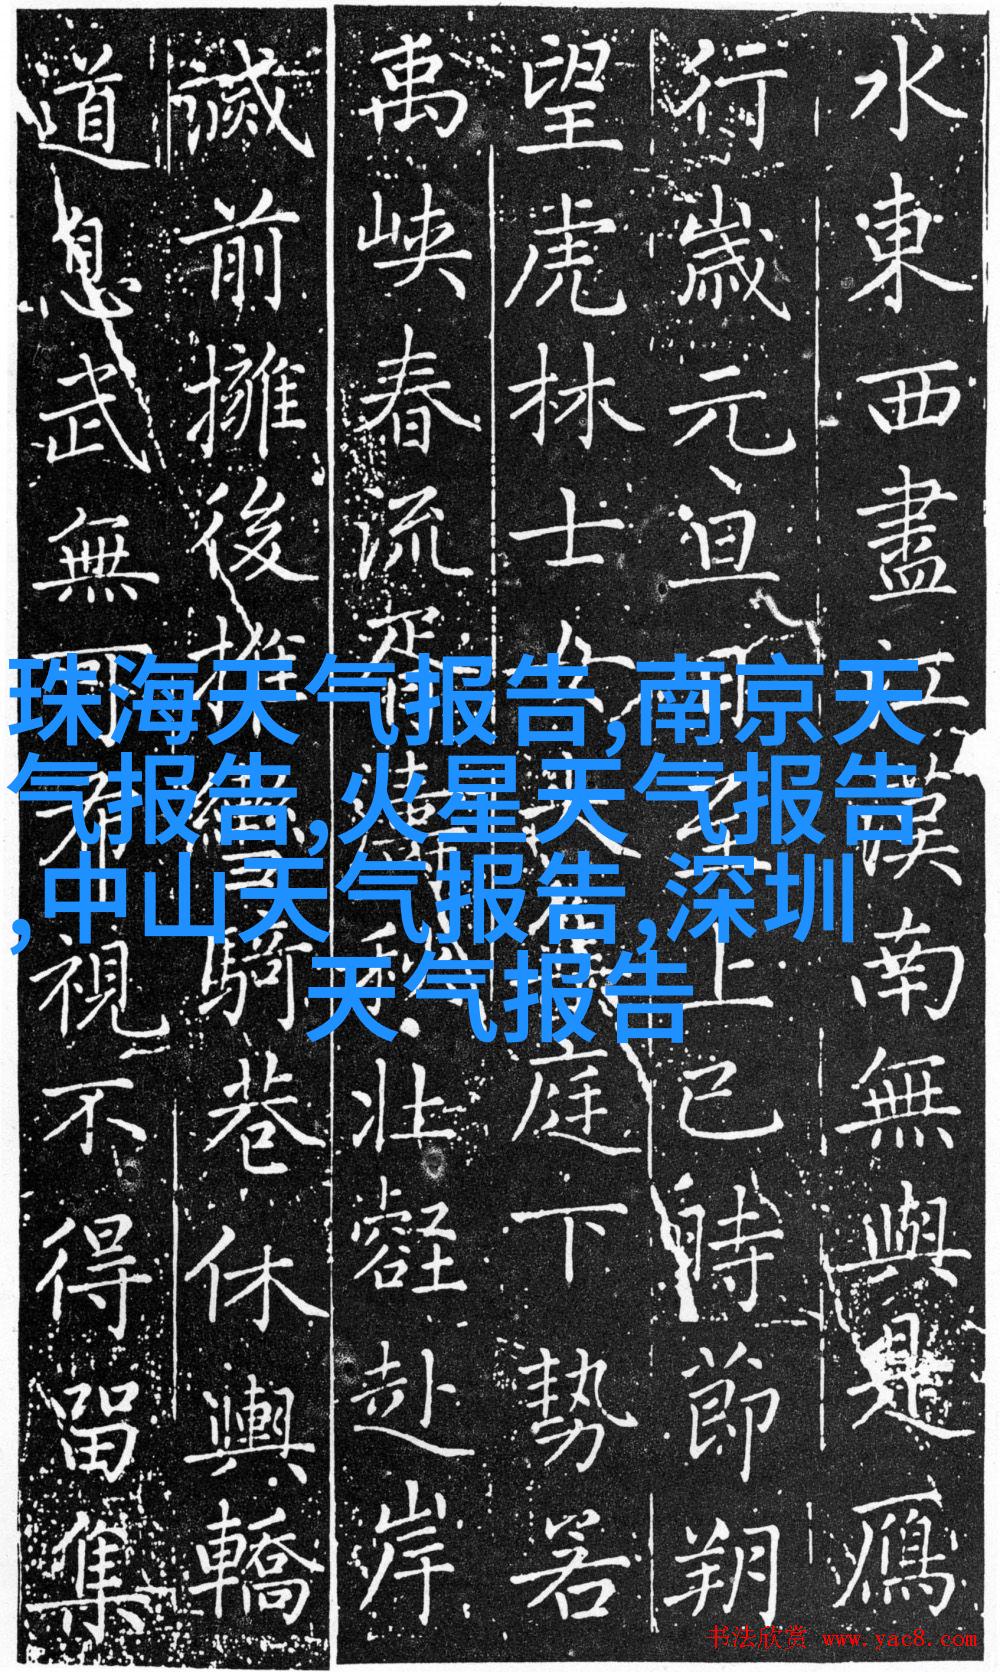 水東西盡江漢南無與是鴈
行歲元旦至上巳時節朔
望虎林士女夾庭下勢若
禹峽春流秋壯壑赴岸
滅前擁後推騎巷休輿轎
道息武無可布視不得留集
珠海天气报告,南京天
气报告,火星天气报告
,中山天气报告,深圳
天气报告
书法欣赏 www.yac8.com